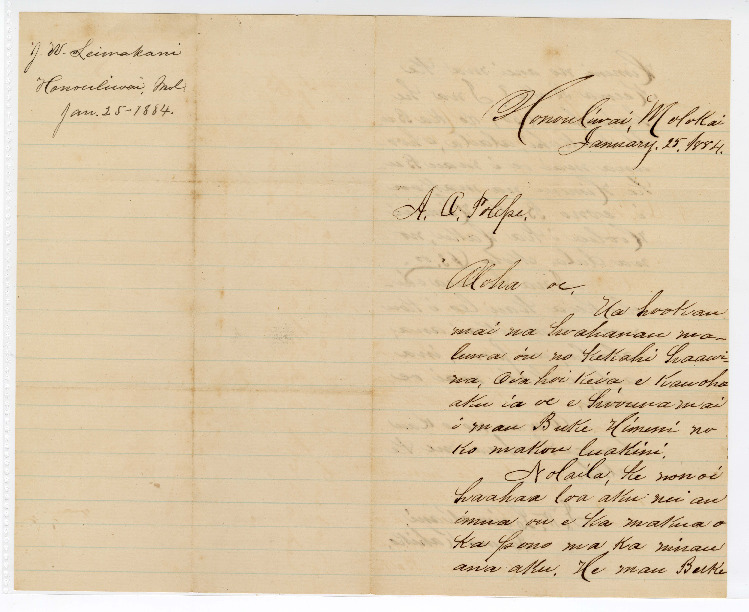 J. W. Leimakani
Honouliwai, Mol.
Jan. 25-1884.
Honouliwai, Molokai
January. 25. 1884.
A. O. Polepe.
Aloha oe,
Ua hookau
mai na hoahanau ma-
luna o'u no kekahi haawi-
na, Oia hoi keia e kauoha
aku ia oe e hoouna mai
i mau Buke Himeni no
ko makou luakini.
Nolaila, ke nonoi
haahaa loa aku nei au
imua ou e ka makua o
ka pono ma ka ninau
ana aku. He mau Buke